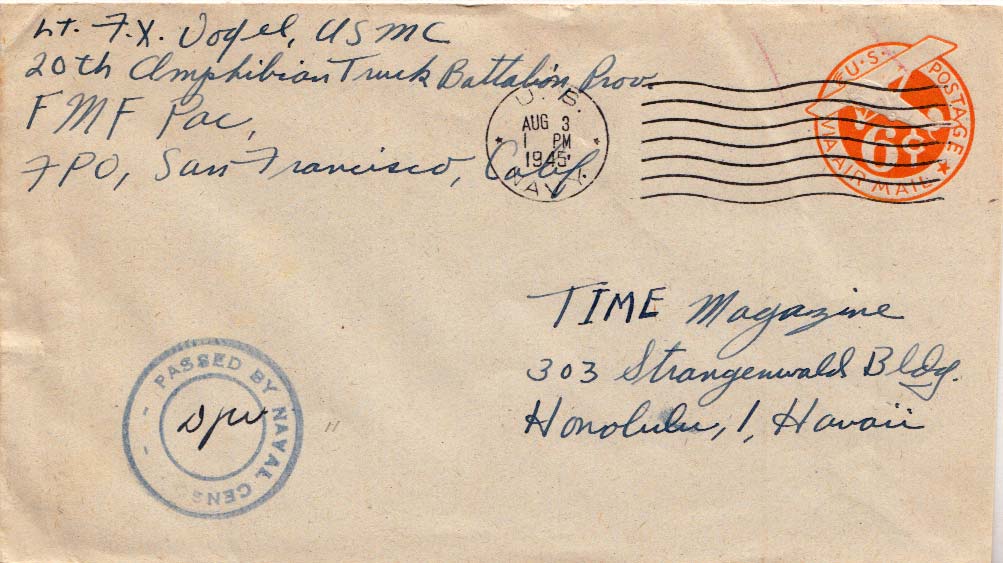 Lt. F.X. Vogel, USMC
20th Amphibian Truck Battalion, Prov.
FMF Pac,
FPO, San Francisco, Calif.
U. S.
AUG 3
1 PM
1945
NAVY.
U.S. POSTAGE
6¢
VIA AIR MAIL
TIME Magazine
303 Strangenwald Bldg.
Honolulu, 1, Hawaii
PASSED BY NAVAL CENS